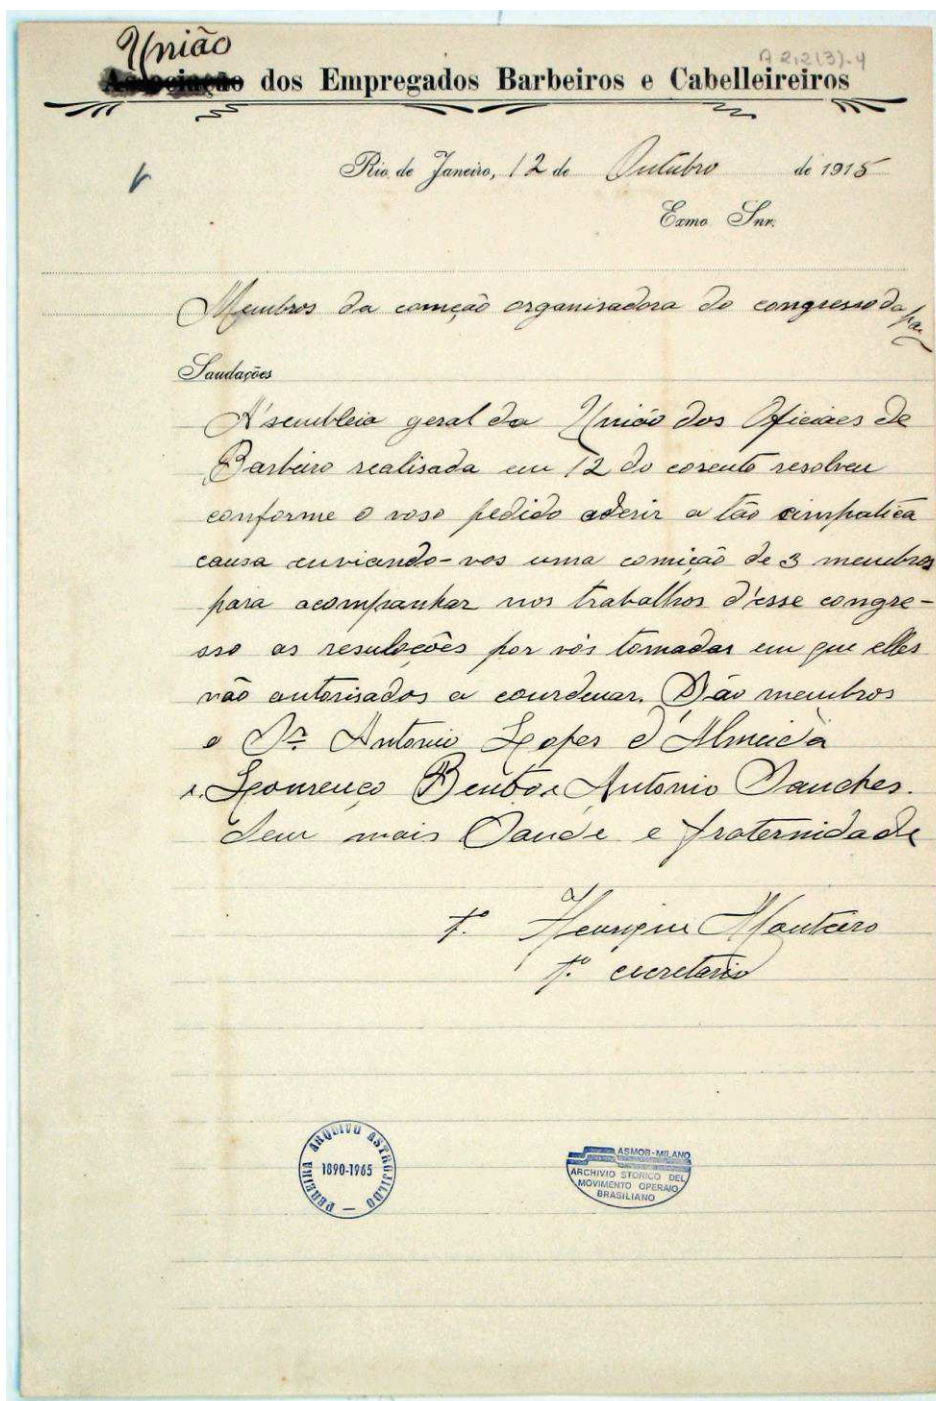 União
A 2,2(3)-4
Associação dos Empregados Barbeiros e Cabelleireiros
Rio de Janeiro, 12 de Outubro de 1915
Exmo Snr.
Membros da começão organisadora do congresso da paz
Saudações
A'sembleia geral da União dos Oficiaes de
Barbeiro realisada em 12 do corente resolveu
conforme o voso pedido aderir a tão cimpatica
causa enviando-vos uma comição de 3 membros
para acompanhar nos trabalhos d'esse congre-
sso as resuloções por vós tomadas em que elles
vão autorisados a courdenar. São membros
o Sr. Antonio Lopes d'Almeida
e. Lourenço Bento e Antonio Sanches.
Sem mais Saude e fraternidade
1º Henrique Monteiro
1º cecretario
ARQUIVO ASTROJILDO PEREIRA
1890-1965
ASMOB-MILANO
ARCHIVIO STORICO DEL
MOVIMENTO OPERAIO
BRASILIANO